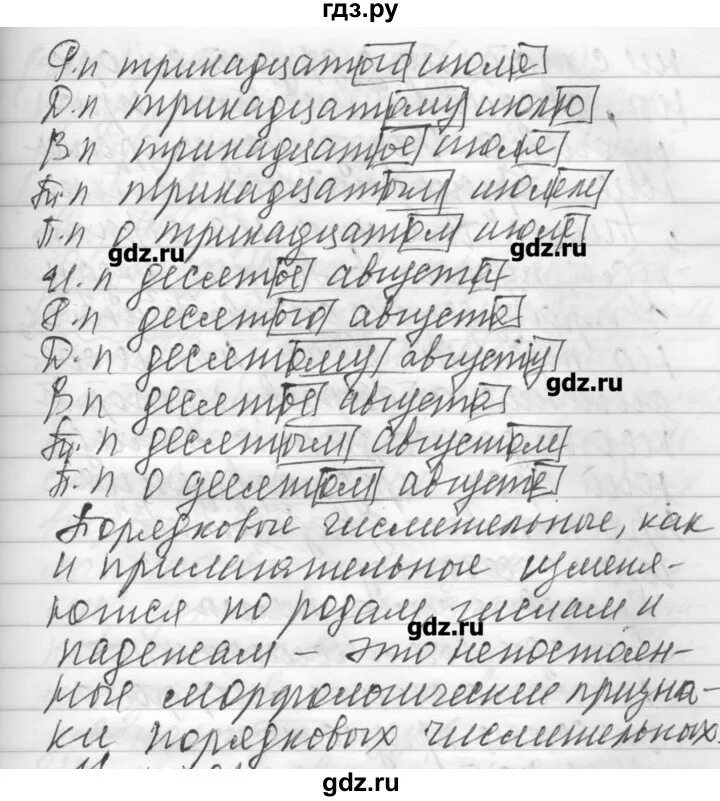 гдз.ру
Р.п тринадцатого июля
Д.п тринадцатому июлю.
В.п тринадцатое июля
Тв.п тринадцатым июлем
П.п о тринадцатом июле
gdz.ru gdz.ru
И.п десятое августа
Р.п десятого августа
Д.п десятому августу
gdz.ru
В.п десятое августа
Тв.п десятым августом
П.п о десятом августе
Порядковые числительные, как
и прилагательные изменя-
ются по родам, числам и
gdz.ru
падежам – это непостоян-
ные морфологические призна-
ки порядковых числительных.
gdz.ru